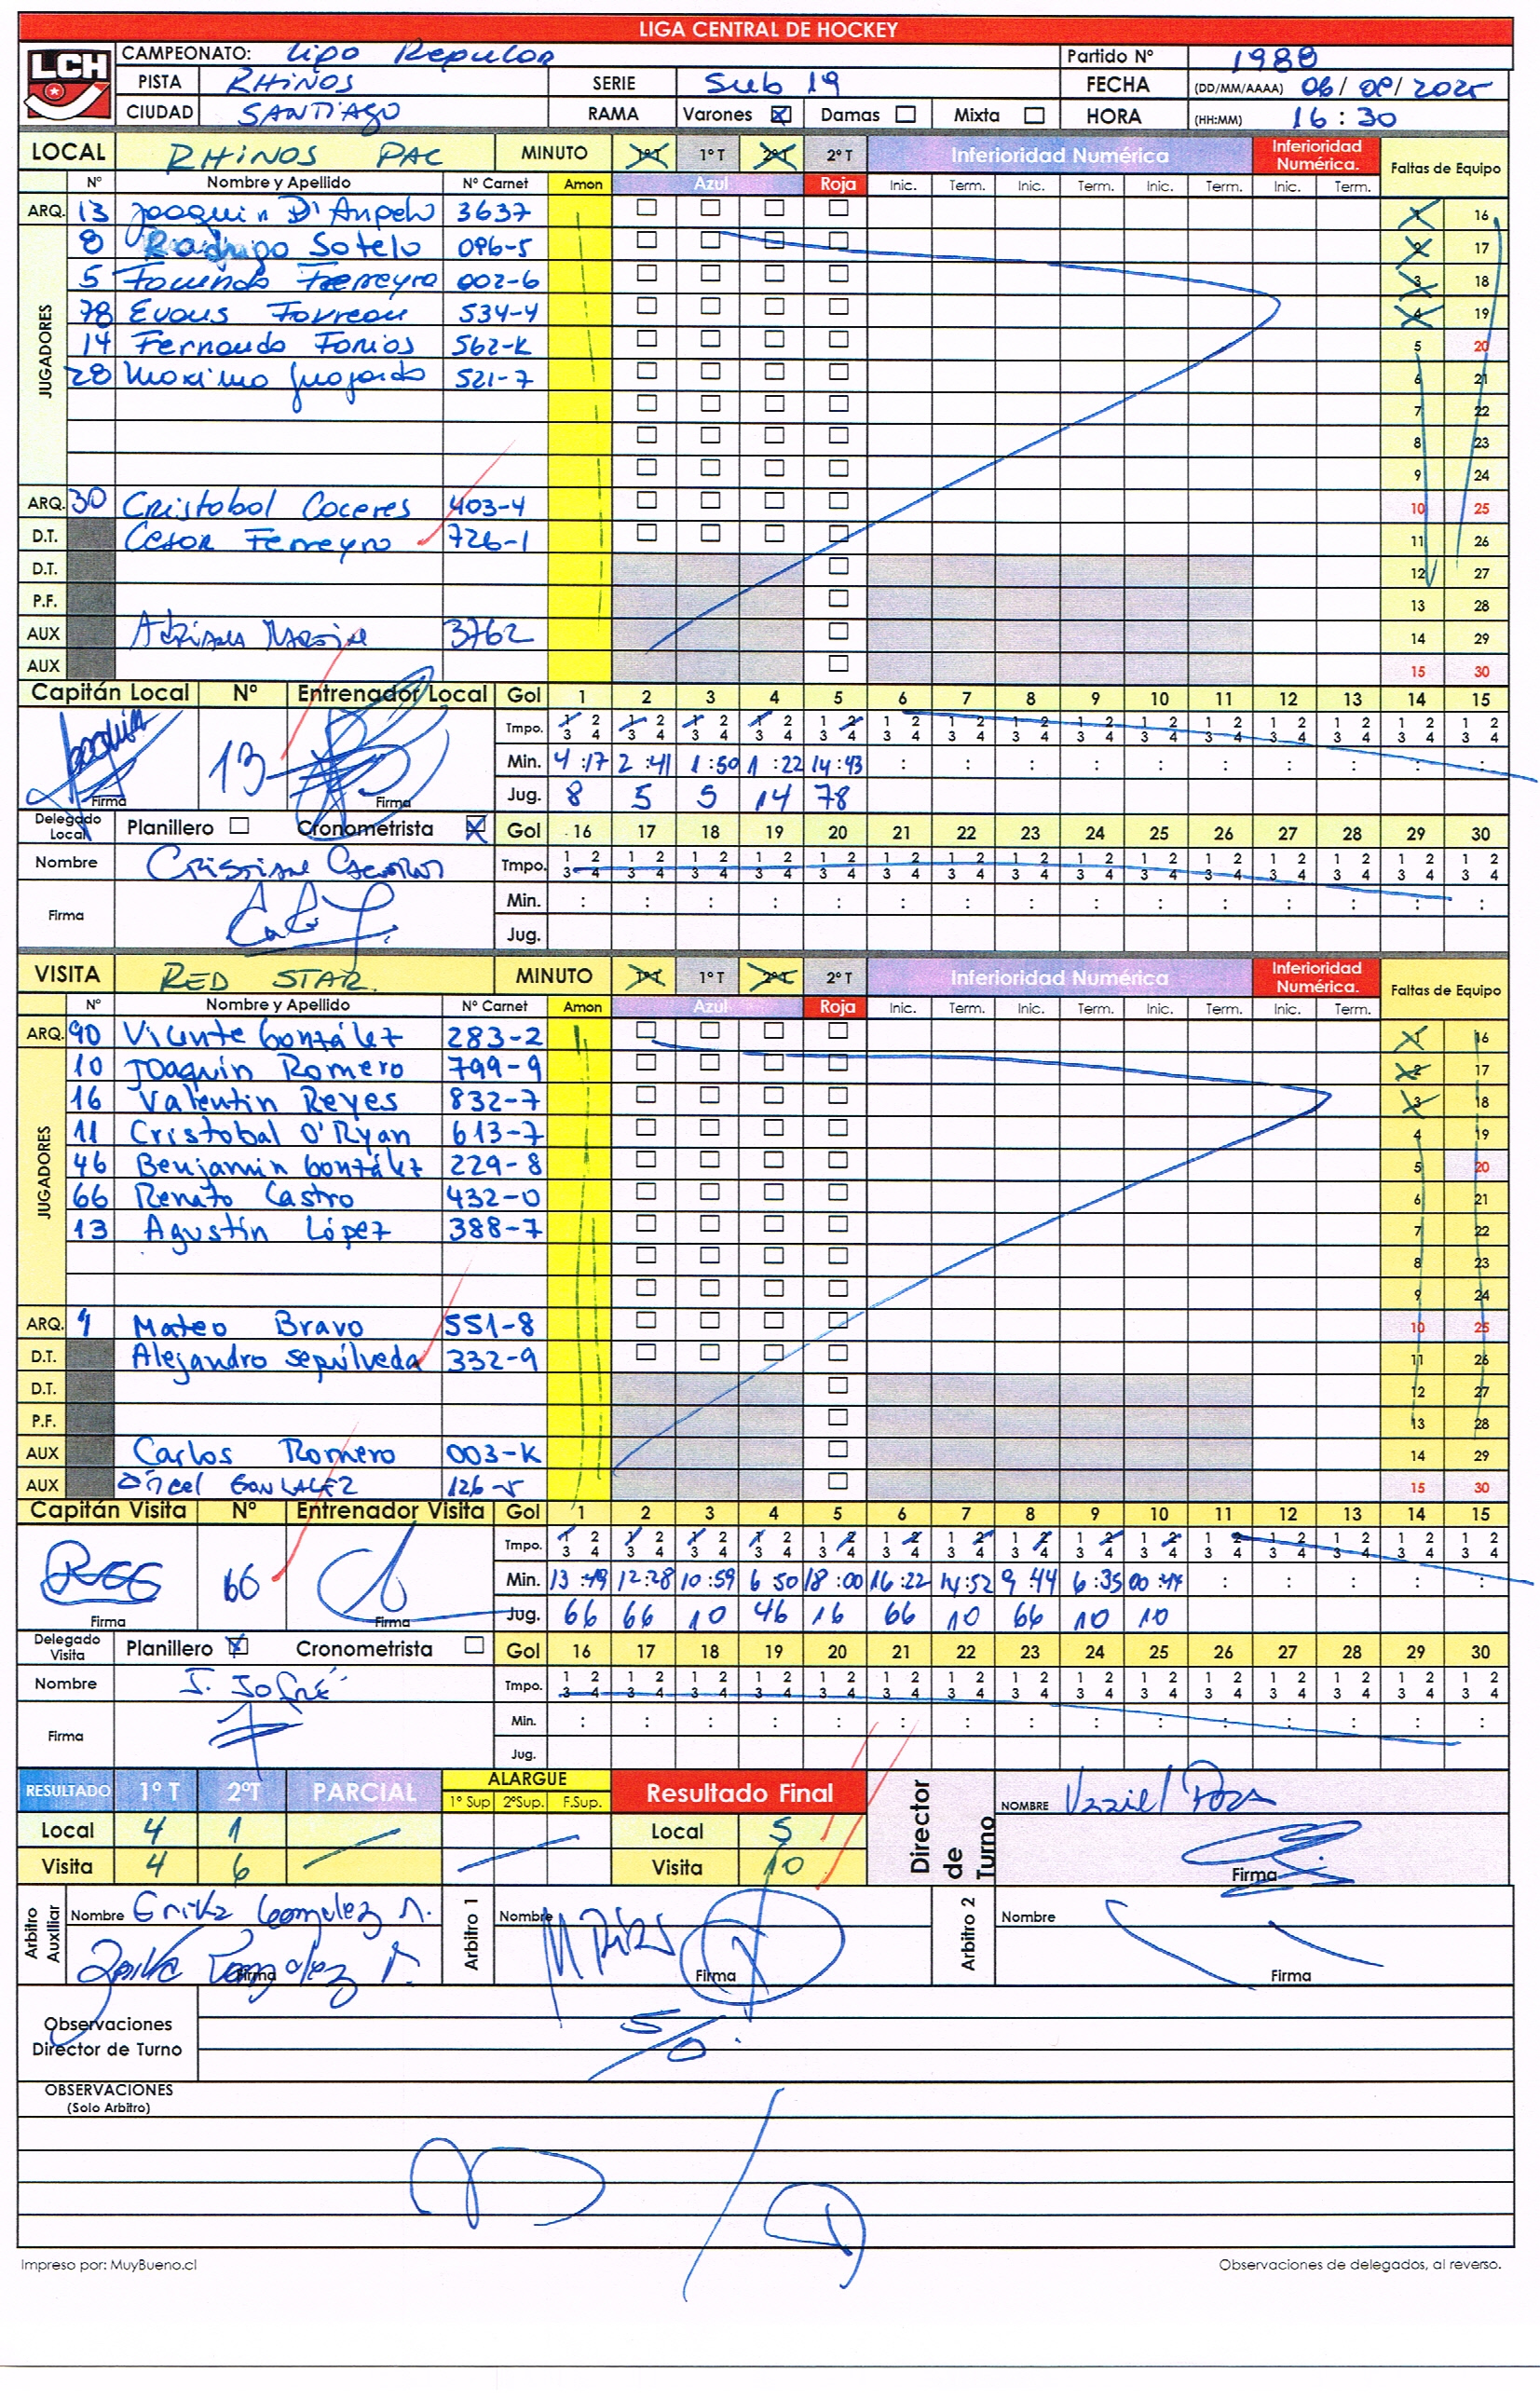 LIGA CENTRAL DE HOCKEY
LCH
CAMPEONATO: Liga Regular Partido Nº 1988
PISTA RHINOS SERIE Sub 19 FECHA (DD/MM/AAAA) 06/09/2025
CIUDAD SANTIAGO RAMA Varones Damas Mixta HORA (HH:MM) 16:30
LOCAL RHINOS PAC MINUTO 1ºT 1ºT 2ºT 2ºT Inferioridad Numérica Inferioridad Numérica. Faltas de Equipo
Nº Nombre y Apellido Nº Carnet Amon Azul Roja Inic. Term. Inic. Term. Inic. Term. Inic. Term.
ARQ. 13 Joaquin D'Angelo 3637 1 16
JUGADORES
8 Rodrigo Sotelo 096-5 2 17
5 Facundo Ferreyra 002-6 3 18
78 Evans Farreau 534-4 4 19
14 Fernando Farias 562-K 5 20
28 Maximo Guajardo 521-7 6 21
7 22
8 23
9 24
ARQ. 30 Cristobal Caceres 403-4 10 25
D.T. Cesar Ferreyra 726-1 11 26
D.T. 12 27
P.F. 13 28
AUX 3762 14 29
AUX 15 30
Capitán Local Nº Entrenador Local Gol 1 2 3 4 5 6 7 8 9 10 11 12 13 14 15
Tmpo. 1 2 3 4 1 2 3 4 1 2 3 4 1 2 3 4 1 2 3 4 1 2 3 4 1 2 3 4 1 2 3 4 1 2 3 4 1 2 3 4 1 2 3 4 1 2 3 4 1 2 3 4 1 2 3 4 1 2 3 4
Joaquin 13 Min. 4:17 2:41 1:50 1:22 14:43 : : : : : : : : : :
Firma Firma Jug. 8 5 5 14 78
Delegado Local Planillero Cronometrista Gol 16 17 18 19 20 21 22 23 24 25 26 27 28 29 30
Nombre Cristian Tmpo. 1 2 3 4 1 2 3 4 1 2 3 4 1 2 3 4 1 2 3 4 1 2 3 4 1 2 3 4 1 2 3 4 1 2 3 4 1 2 3 4 1 2 3 4 1 2 3 4 1 2 3 4 1 2 3 4 1 2 3 4
Firma Min. : : : : : : : : : : : : : : :
Jug.
VISITA RED STAR MINUTO 1ºT 1ºT 2ºT 2ºT Inferioridad Numérica Inferioridad Numérica. Faltas de Equipo
Nº Nombre y Apellido Nº Carnet Amon Azul Roja Inic. Term. Inic. Term. Inic. Term. Inic. Term.
ARQ. 90 Vicente González 283-2 1 16
JUGADORES
10 Joaquin Romero 799-9 2 17
16 Valentin Reyes 832-7 3 18
11 Cristobal O'Ryan 613-7 4 19
46 Benjamin González 229-8 5 20
66 Renato Castro 432-0 6 21
13 Agustín López 388-7 7 22
8 23
9 24
ARQ. 1 Mateo Bravo 551-8 10 25
D.T. Alejandro Sepúlveda 332-9 11 26
D.T. 12 27
P.F. 13 28
AUX Carlos Romero 003-K 14 29
AUX 126-5 15 30
Capitán Visita Nº Entrenador Visita Gol 1 2 3 4 5 6 7 8 9 10 11 12 13 14 15
Tmpo. 1 2 3 4 1 2 3 4 1 2 3 4 1 2 3 4 1 2 3 4 1 2 3 4 1 2 3 4 1 2 3 4 1 2 3 4 1 2 3 4 1 2 3 4 1 2 3 4 1 2 3 4 1 2 3 4 1 2 3 4
66 Min. 13:49 12:28 10:59 6:50 18:00 16:22 14:52 9:44 6:35 00:44 : : : : :
Firma Firma Jug. 66 66 10 46 16 66 10 66 10 10
Delegado Visita Planillero Cronometrista Gol 16 17 18 19 20 21 22 23 24 25 26 27 28 29 30
Nombre J. Jofré Tmpo. 1 2 3 4 1 2 3 4 1 2 3 4 1 2 3 4 1 2 3 4 1 2 3 4 1 2 3 4 1 2 3 4 1 2 3 4 1 2 3 4 1 2 3 4 1 2 3 4 1 2 3 4 1 2 3 4 1 2 3 4
Firma Min. : : : : : : : : : : : : : : :
Jug.
RESULTADO 1ºT 2ºT PARCIAL ALARGUE 1ºSup 2ºSup. F.Sup. Resultado Final Director de Turno NOMBRE Uzziel
Local 4 1 Local 5
Visita 4 6 Visita 10 Firma
Arbitro Auxiliar Nombre Erika Gonzalez A. Arbitro 1 Nombre Arbitro 2 Nombre
Erika Gonzalez A. Firma Firma Firma
Observaciones
Director de Turno S/O.
OBSERVACIONES
(Solo Arbitro)
Impreso por: MuyBueno.cl Observaciones de delegados, al reverso.